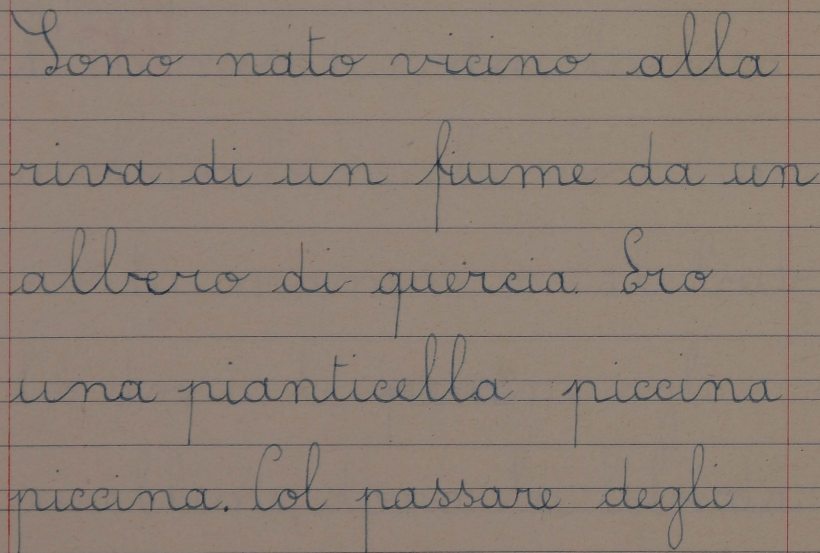 Sono nato vicino alla
riva di un fiume da un
albero di quercia. Ero
una pianticella piccina
piccina. Col passare degli